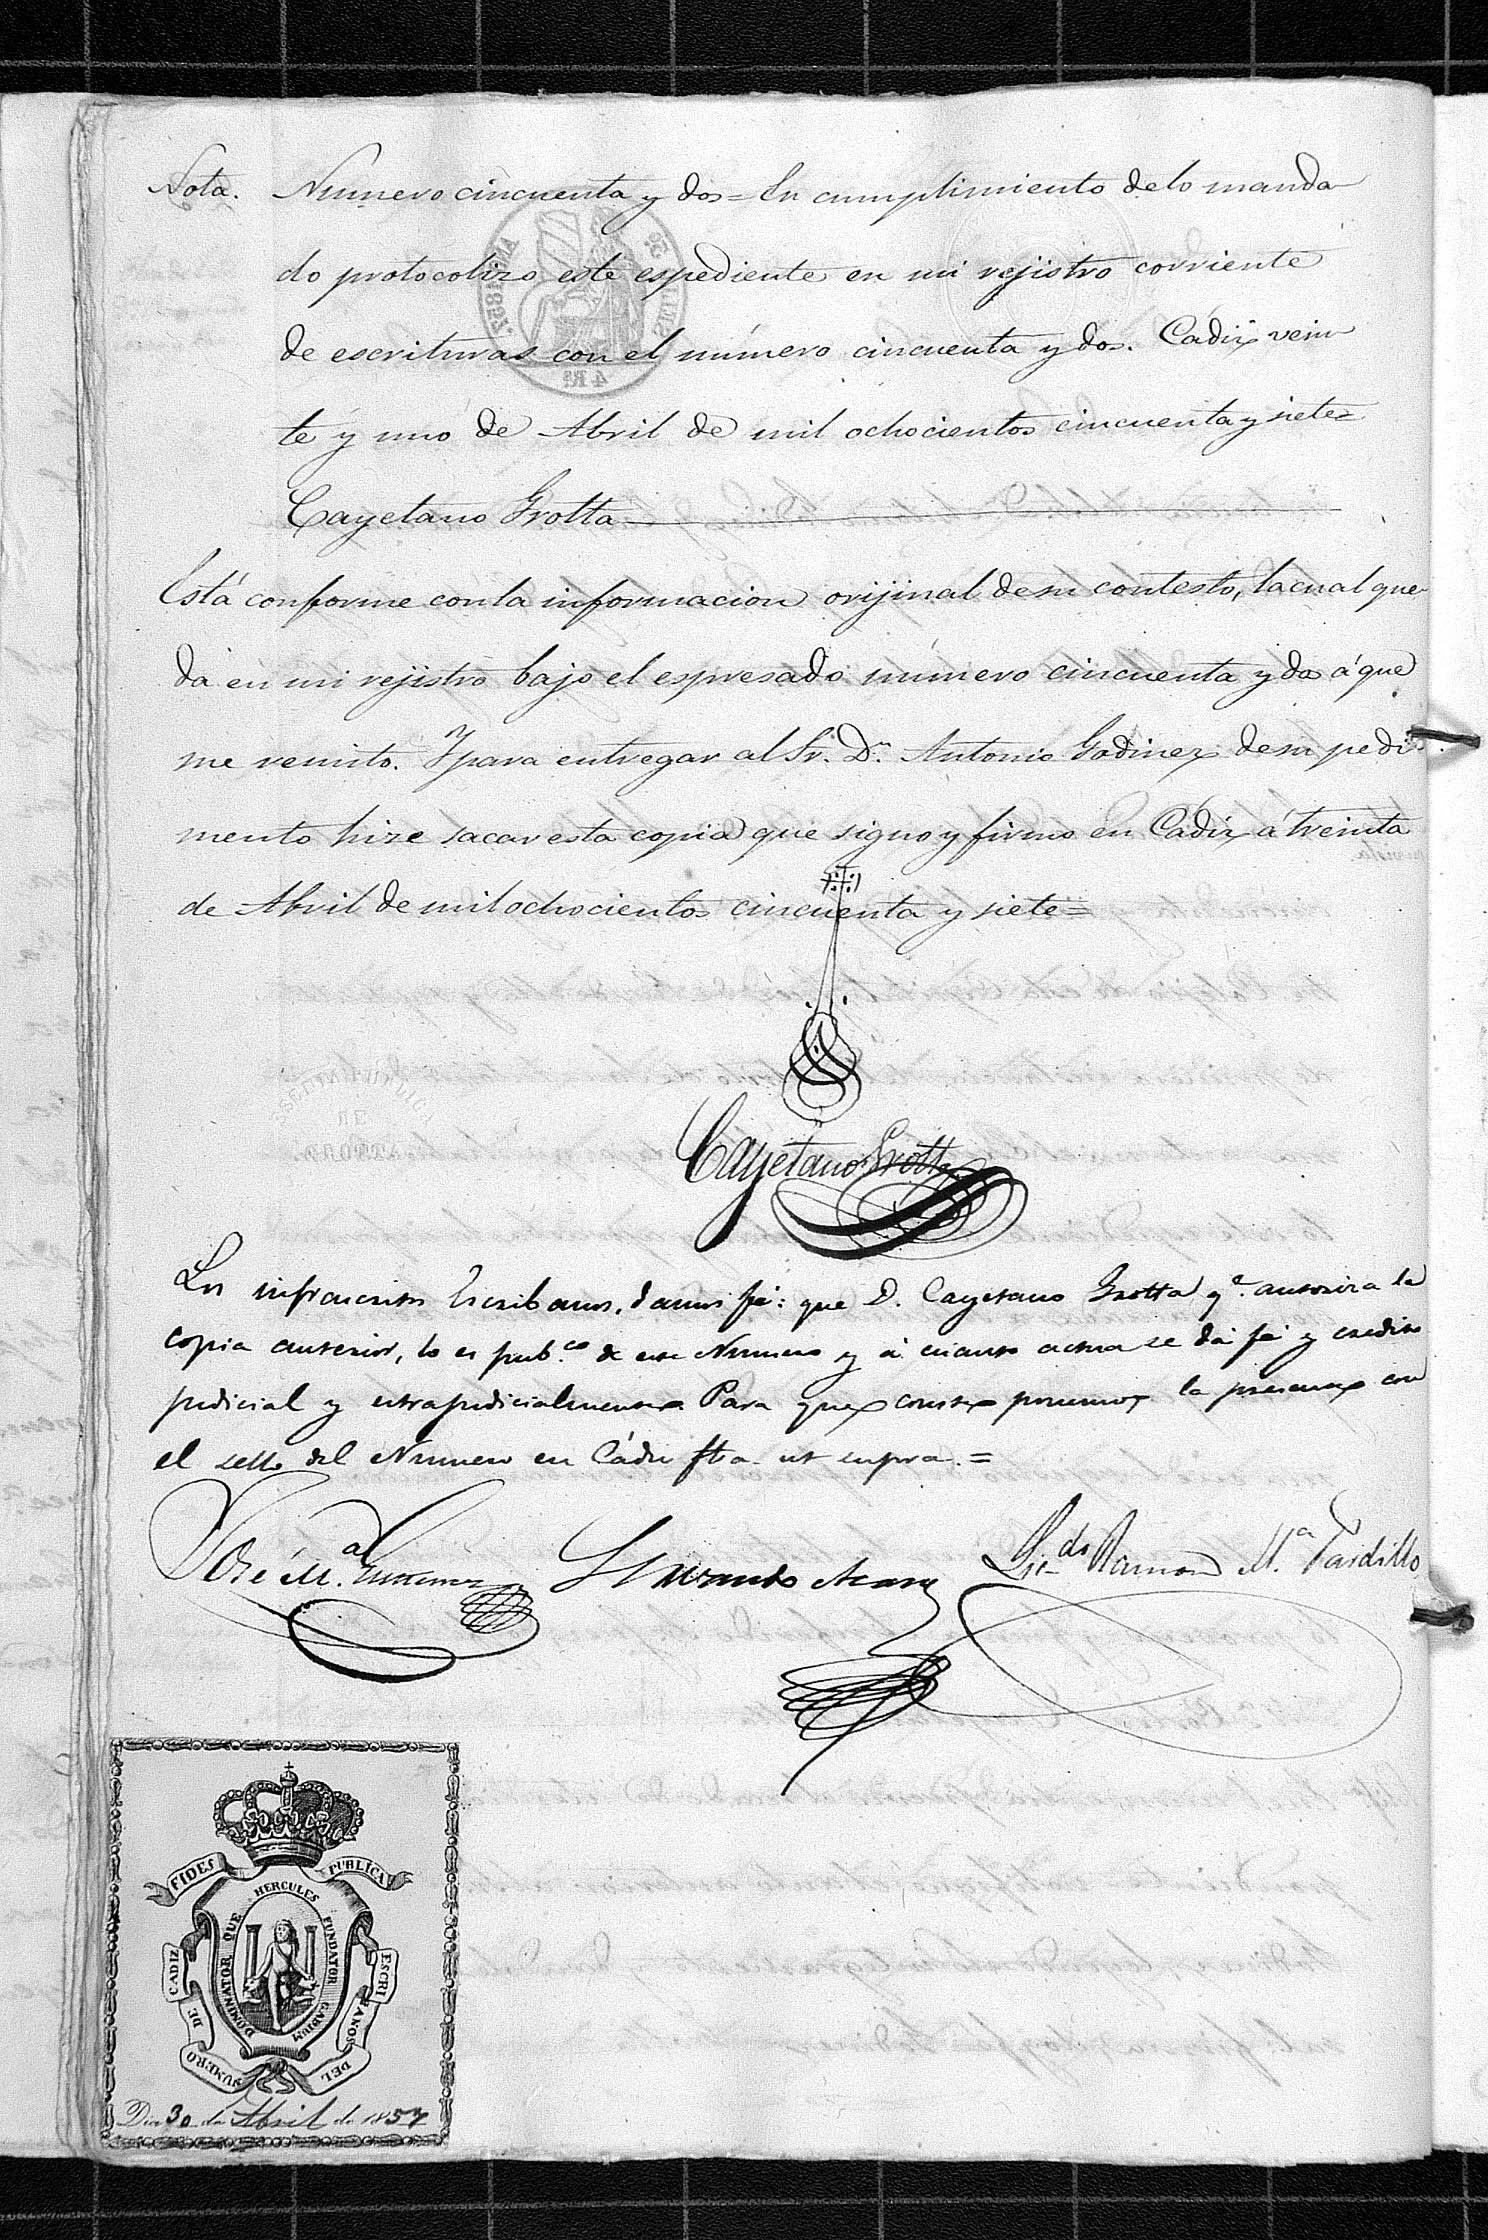 Nota. Numero cincuenta y dos = En cumplimiento de lo manda
do protocolizo este espediente en mi rejistro corriente
de escrituras con el número cincuenta y dos. Cádiz vein
te y uno de Abril de mil ochocientos cincuenta y siete =
Cayetano Grotta
Está conforme con la informacion orijinal de su contesto, la cual que
da en mi rejistro bajo el espresado número cincuenta y dos á que
me remito. Y para entregar al Sr. Dn. Antonio Godinez de su pedi
mento hize sacar esta copia que signo y firmo en Cádiz á treinta
de Abril de mil ochocientos cincuenta y siete =
Cayetano Grotta
Los infraescritos Escribanos, damos fé: que D. Cayetano Grotta qe. autoriza la
copia anterior, lo es pubco. de este Numero y á cuanto actua se dá fé y credito
judicial y estrajudicialmente. Para que conste ponemos la presente con
el sello del Numero en Cádiz fha. ut supra. =
José Ma. Licdo Ramon Ma. Pardillo
FIDES PUBLICA
HERCULES FUNDATOR GADIUM DOMINATOR QUE
ESCRIBANOS DEL NUMERO DE CADIZ
Dia 30 de Abril de 1857